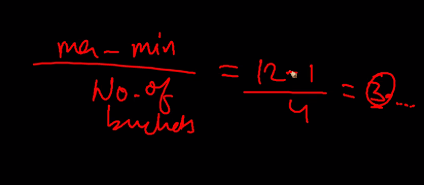 max - min
No. of
buckets
= 12 - 1
4
= 3. ....